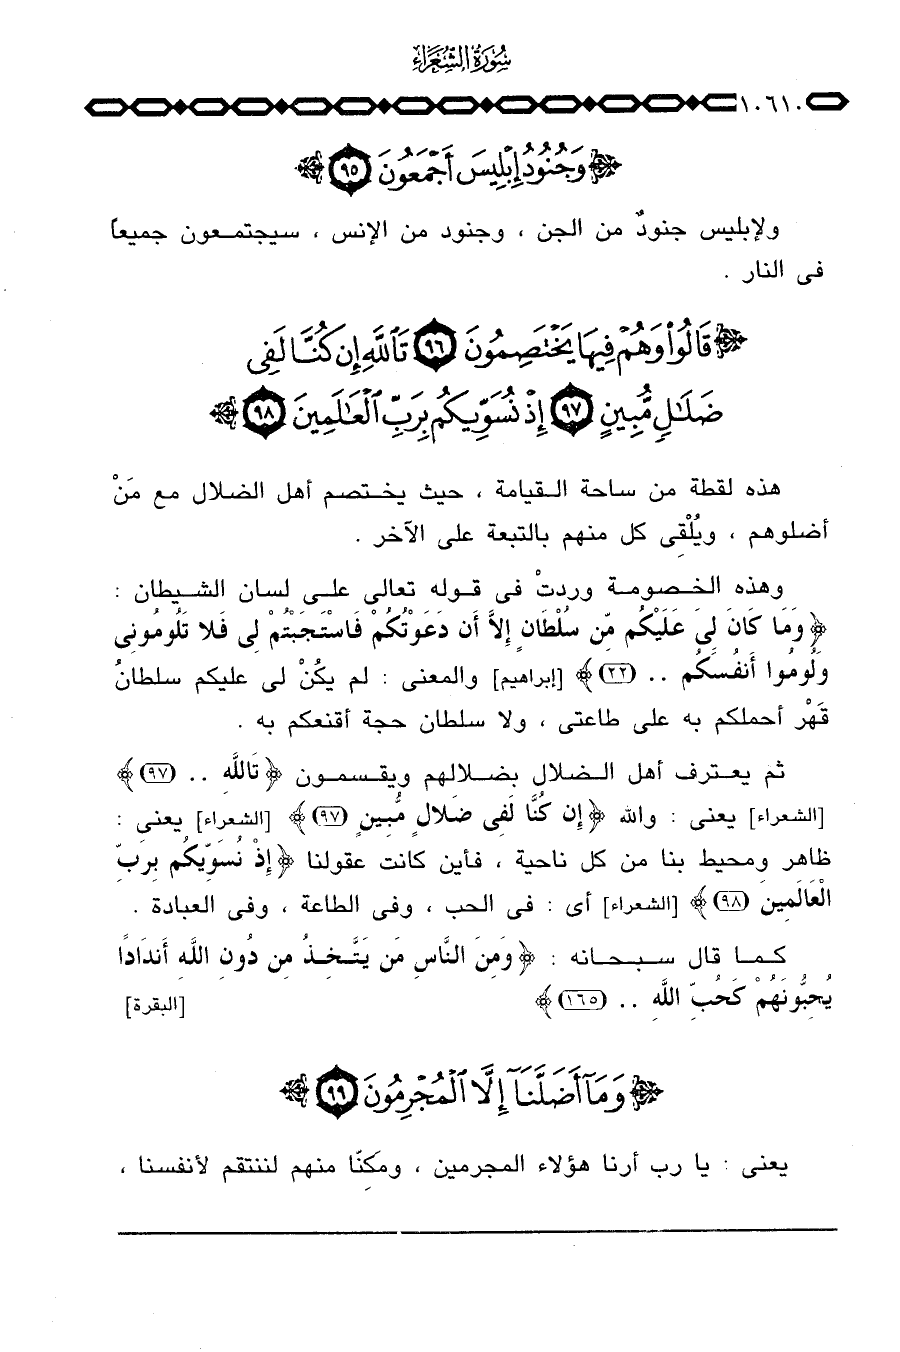 سُورَةُ الشُّعَرَاءِ
١٠٦١٠
﴿ وَجُنُودُ إِبْلِيسَ أَجْمَعُونَ ٩٥ ﴾
ولإبليس جنودٌ من الجن ، وجنود من الإنس ، سيجتمعون جميعاً
فى النار .
﴿ قَالُوا۟ وَهُمْ فِيهَا يَخْتَصِمُونَ ٩٦ تَٱللَّهِ إِن كُنَّا لَفِى
ضَلَـٰلٍ مُّبِينٍ ٩٧ إِذْ نُسَوِّيكُم بِرَبِّ ٱلْعَـٰلَمِينَ ٩٨ ﴾
هذه لقطة من ساحة القيامة ، حيث يختصم أهل الضلال مع مَنْ
أضلوهم ، ويُلْقِى كل منهم بالتبعة على الآخر .
وهذه الخصومة وردتْ فى قوله تعالى على لسان الشيطان :
﴿ وَمَا كَانَ لِىَ عَلَيْكُم مِّن سُلْطَانٍ إِلاَّ أَن دَعَوْتُكُمْ فَاسْتَجَبْتُمْ لِى فَلا تَلُومُونِى
وَلُومُوا أَنفُسَكُم .. (٢٢) ﴾ [إبراهيم] والمعنى : لم يكُنْ لى عليكم سلطانُ
قَهْرٍ أحملكم به على طاعتى ، ولا سلطان حجة أقنعكم به .
ثم يعترف أهل الضلال بضلالهم ويقسمون ﴿ تَاللَّهِ .. (٩٧) ﴾
[الشعراء] يعنى : والله ﴿ إِن كُنَّا لَفِى ضَلالٍ مُّبِينٍ (٩٧) ﴾ [الشعراء] يعنى :
ظاهر ومحيط بنا من كل ناحية ، فأين كانت عقولنا ﴿ إِذْ نُسَوِّيكُم بِرَبِّ
الْعَالَمِينَ (٩٨) ﴾ [الشعراء] أى : فى الحب ، وفى الطاعة ، وفى العبادة .
كما قال سبحانه : ﴿ وَمِنَ النَّاسِ مَن يَتَّخِذُ مِن دُونِ اللَّهِ أَندَادًا
يُحِبُّونَهُمْ كَحُبِّ اللَّهِ .. (١٦٥) ﴾ [البقرة]
﴿ وَمَآ أَضَلَّنَآ إِلَّا ٱلْمُجْرِمُونَ ٩٩ ﴾
يعنى : يا رب أرنا هؤلاء المجرمين ، ومكِنّا منهم لننتقم لأنفسنا ،